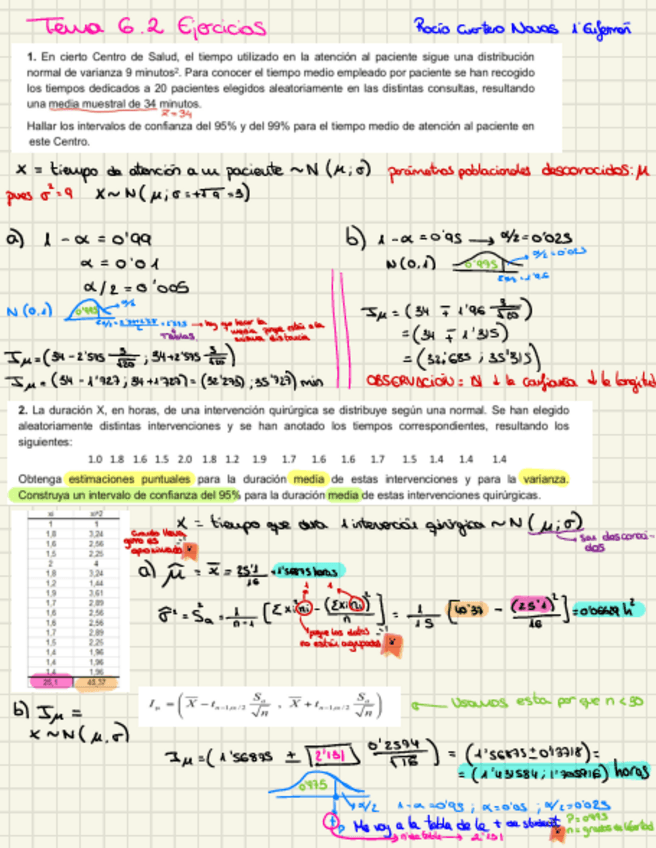 Tema 6.2 Ejercicios
1. En cierto Centro de Salud, el tiempo utilizado en la atención al paciente sigue una distribución
normal de varianza 9 minutos². Para conocer el tiempo medio empleado por paciente se han recogido
los tiempos dedicados a 20 pacientes elegidos aleatoriamente en las distintas consultas, resultando
una media muestral de 34 minutos.
x̄=34
Hallar los intervalos de confianza del 95% y del 99% para el tiempo medio de atención al paciente en
este Centro.
X = tiempo de atención a un paciente ~ N(μ;σ) parámetros poblacionales desconocidos: μ
pues σ²=9 X~N(μ;σ=+√9=3)
a) 1-α=0'99
α=0'01
α/2=0'005
N(0,1)
Tablas
Iμ=(34-2'575 3/√20 ; 34+2'575 3/√20)
b) 1-α=0'95 → α/2=0'025
N(0,1) 0'975 α/2=0'025
Iμ=(34 ∓ 1'96 3/√20)
=(34 ∓ 1'315)
=(32'685 ; 35'315)
OBSERVACIÓN: ↓ la confianza ↓ la longitud
2. La duración X, en horas, de una intervención quirúrgica se distribuye según una normal. Se han elegido
aleatoriamente distintas intervenciones y se han anotado los tiempos correspondientes, resultando los
siguientes:
1.0 1.8 1.6 1.5 2.0 1.8 1.2 1.9 1.7 1.6 1.6 1.7 1.5 1.4 1.4 1.4
Obtenga estimaciones puntuales para la duración media de estas intervenciones y para la varianza.
Construya un intervalo de confianza del 95% para la duración media de estas intervenciones quirúrgicas.
xi xi^2
1 1
1,8 3,24
1,6 2,56
1,5 2,25
2 4
1,8 3,24
1,2 1,44
1,9 3,61
1,7 2,89
1,6 2,56
1,6 2,56
1,7 2,89
1,5 2,25
1,4 1,96
1,4 1,96
1,4 1,96
25,1 40,37
X = tiempo que dura 1 intervención quirúrgica ~ N(μ;σ)
son desconocidos
a) μ̂ = x̄ = 25'1/16 = 1'56875 horas
σ̂² = S²a = 1/n-1 [Σxi²ni - (Σxini)²/n] = 1/15 [40'37 - (25'1)²/16] =
porque los datos
no están agrupados
b) Iμ =
X~N(μ,σ)
Iμ = (X̄ - t n-1;α/2 Sa/√n , X̄ + t n-1;α/2 Sa/√n)
Usamos esta porque n<30
Iμ=(1'56875 ± 2'131 0'2594/√16) = (1'56875±0'13718)=
=(1'431584; 1'705916) horas
0'975
α/2 1-α=0'95; α=0'05; α/2=0'025
Me voy a la tabla de la t de student
2'131